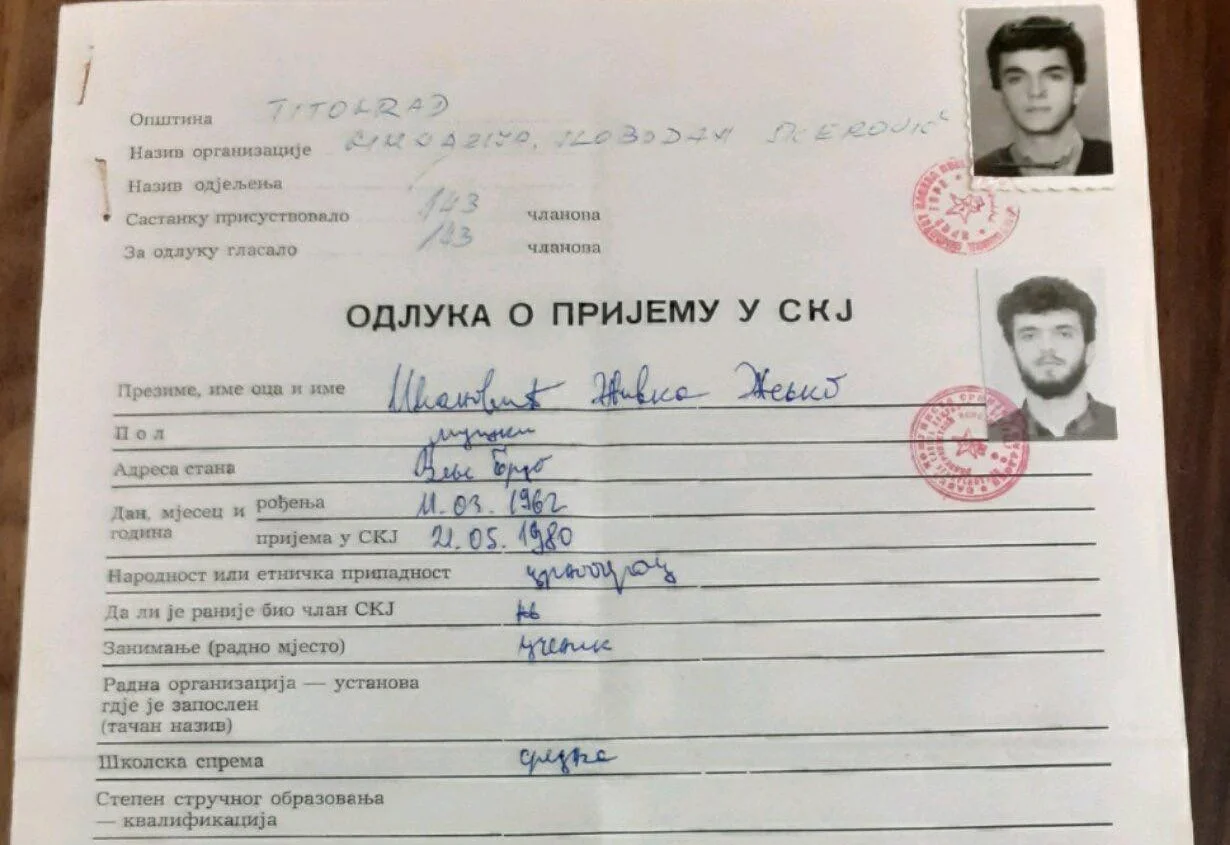 Општина TITOGRAD
Назив организације GIMNAZIJA, SLOBODAN ŠKEROVIĆ
Назив одјељења
Састанку присуствовало 143 чланова
За одлуку гласало 143 чланова
ОДЛУКА О ПРИЈЕМУ У СКЈ
Презиме, име оца и име Ивановић Живка Жељко
Пол мушки
Адреса стана Веље Брдо
Дан, мјесец и година
рођења 11.03.1962
пријема у СКЈ 21.05.1980
Народност или етничка припадност црногорац
Да ли је раније био члан СКЈ не
Занимање (радно мјесто) ученик
Радна организација — установа
гдје је запослен
(тачан назив)
Школска спрема средња
Степен стручног образовања
— квалификација